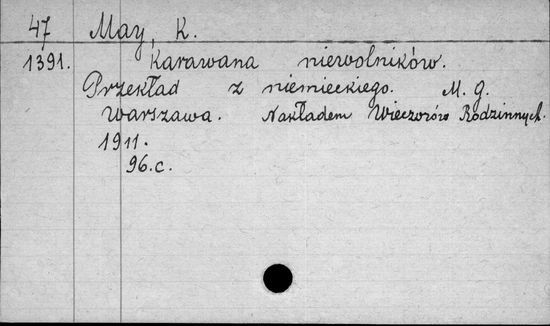 47 May, K.
1391. Karawana niewolników.
Przekład z niemieckiego. M. G.
Warszawa. Nakładem Wieczorów Rodzinnych.
1911.
96.c.